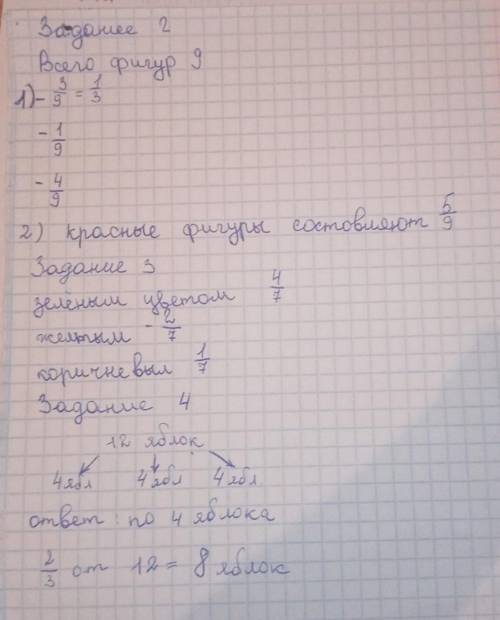 Задание 2
Всего фигур 9
1) - 3/9 = 1/3
- 1/9
- 4/9
2) красные фигуры состовляют 5/9
Задание 3
зелёным цветом 4/7
желтым - 2/7
коричневыл 1/7
Задание 4
12 яблок
4 ябл 4 ябл 4 ябл
ответ: по 4 яблока
2/3 от 12 = 8 яблок